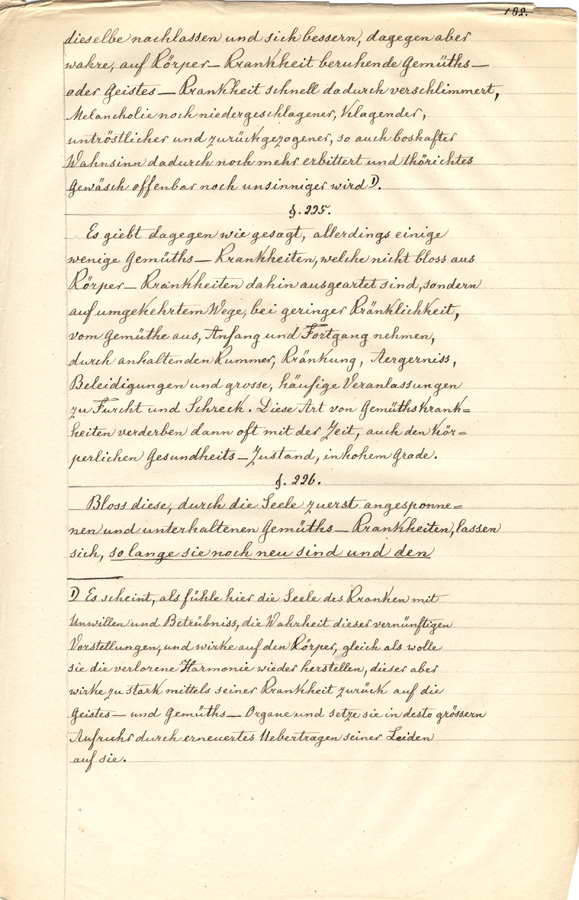 182.
dieselbe nachlassen und sich bessern, dagegen aber
wahre, auf Körper — Krankheit beruhende Gemüths —
oder Geistes — Krankheit schnell dadurch verschlimmert,
Melancholie noch niedergeschlagener, klagender,
untröstlicher und zurückgezogener, so auch boshafter
Wahnsinn dadurch noch mehr erbittert und thörichtes
Gewäsch offenbar noch unsinniger wird 1).
§. 225.
Es giebt dagegen wie gesagt, allerdings einige
wenige Gemüths — Krankheiten, welche nicht bloss aus
Körper — Krankheiten dahin ausgeartet sind, sondern
auf umgekehrtem Wege, bei geringer Kränklichkeit,
vom Gemüthe aus, Anfang und Fortgang nehmen,
durch anhaltenden Kummer, Kränkung, Aergerniss,
Beleidigungen und grosse, häufige Veranlassungen
zu Furcht und Schreck. Diese Art von Gemüthskrank=
heiten verderben dann oft mit der Zeit, auch den kör=
perlichen Gesundheits — Zustand, in hohem Grade.
§. 226.
Bloss diese, durch die Seele zuerst angesponne=
nen und unterhaltenen Gemüths — Krankheiten, lassen
sich, so lange sie noch neu sind und den
1) Es scheint, als fühle hier die Seele des Kranken mit
Unwillen und Betrübniss, die Wahrheit dieser vernünftigen
Vorstellungen, und wirke auf den Körper, gleich als wolle
sie die verlorene Harmonie wieder herstellen, dieser aber
wirke zu stark mittels seiner Krankheit zurück auf die
Geistes — und Gemüths — Organe und setze sie in desto grössern
Aufruhr durch erneuertes Uebertragen seiner Leiden
auf sie.